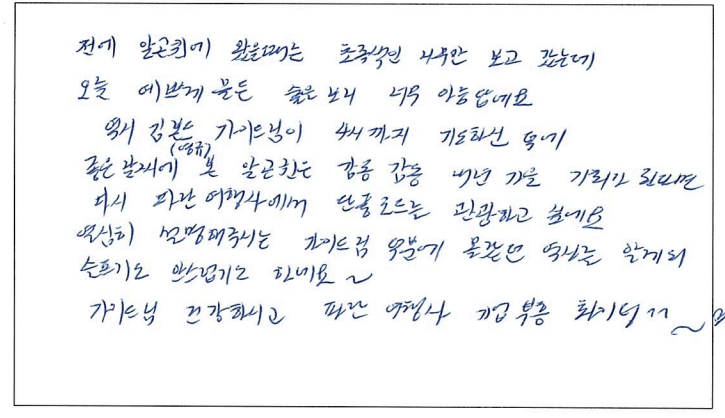 전에 알곤퀸에 왔을때는 초록색인 나무만 보고 갔는데
오늘 예쁘게 물든 숲을 보니 너무 아름답네요
역시 김본스 가이드님이 4시까지 기도하신 덕에
(영유)
좋은 날씨에 본 알곤퀸은 감동 감동 내년 가을 기회가 된다면
다시 파란 여행사에서 단풍로드를 관광하고 싶네요
열심히 설명해주시는 가이드님 덕분에 몰랐던 역사를 알게되
슬프기도 안스럽기도 하네요~
가이드님 건강하시고 파란 여행사 기업 부흥 화이팅^^~